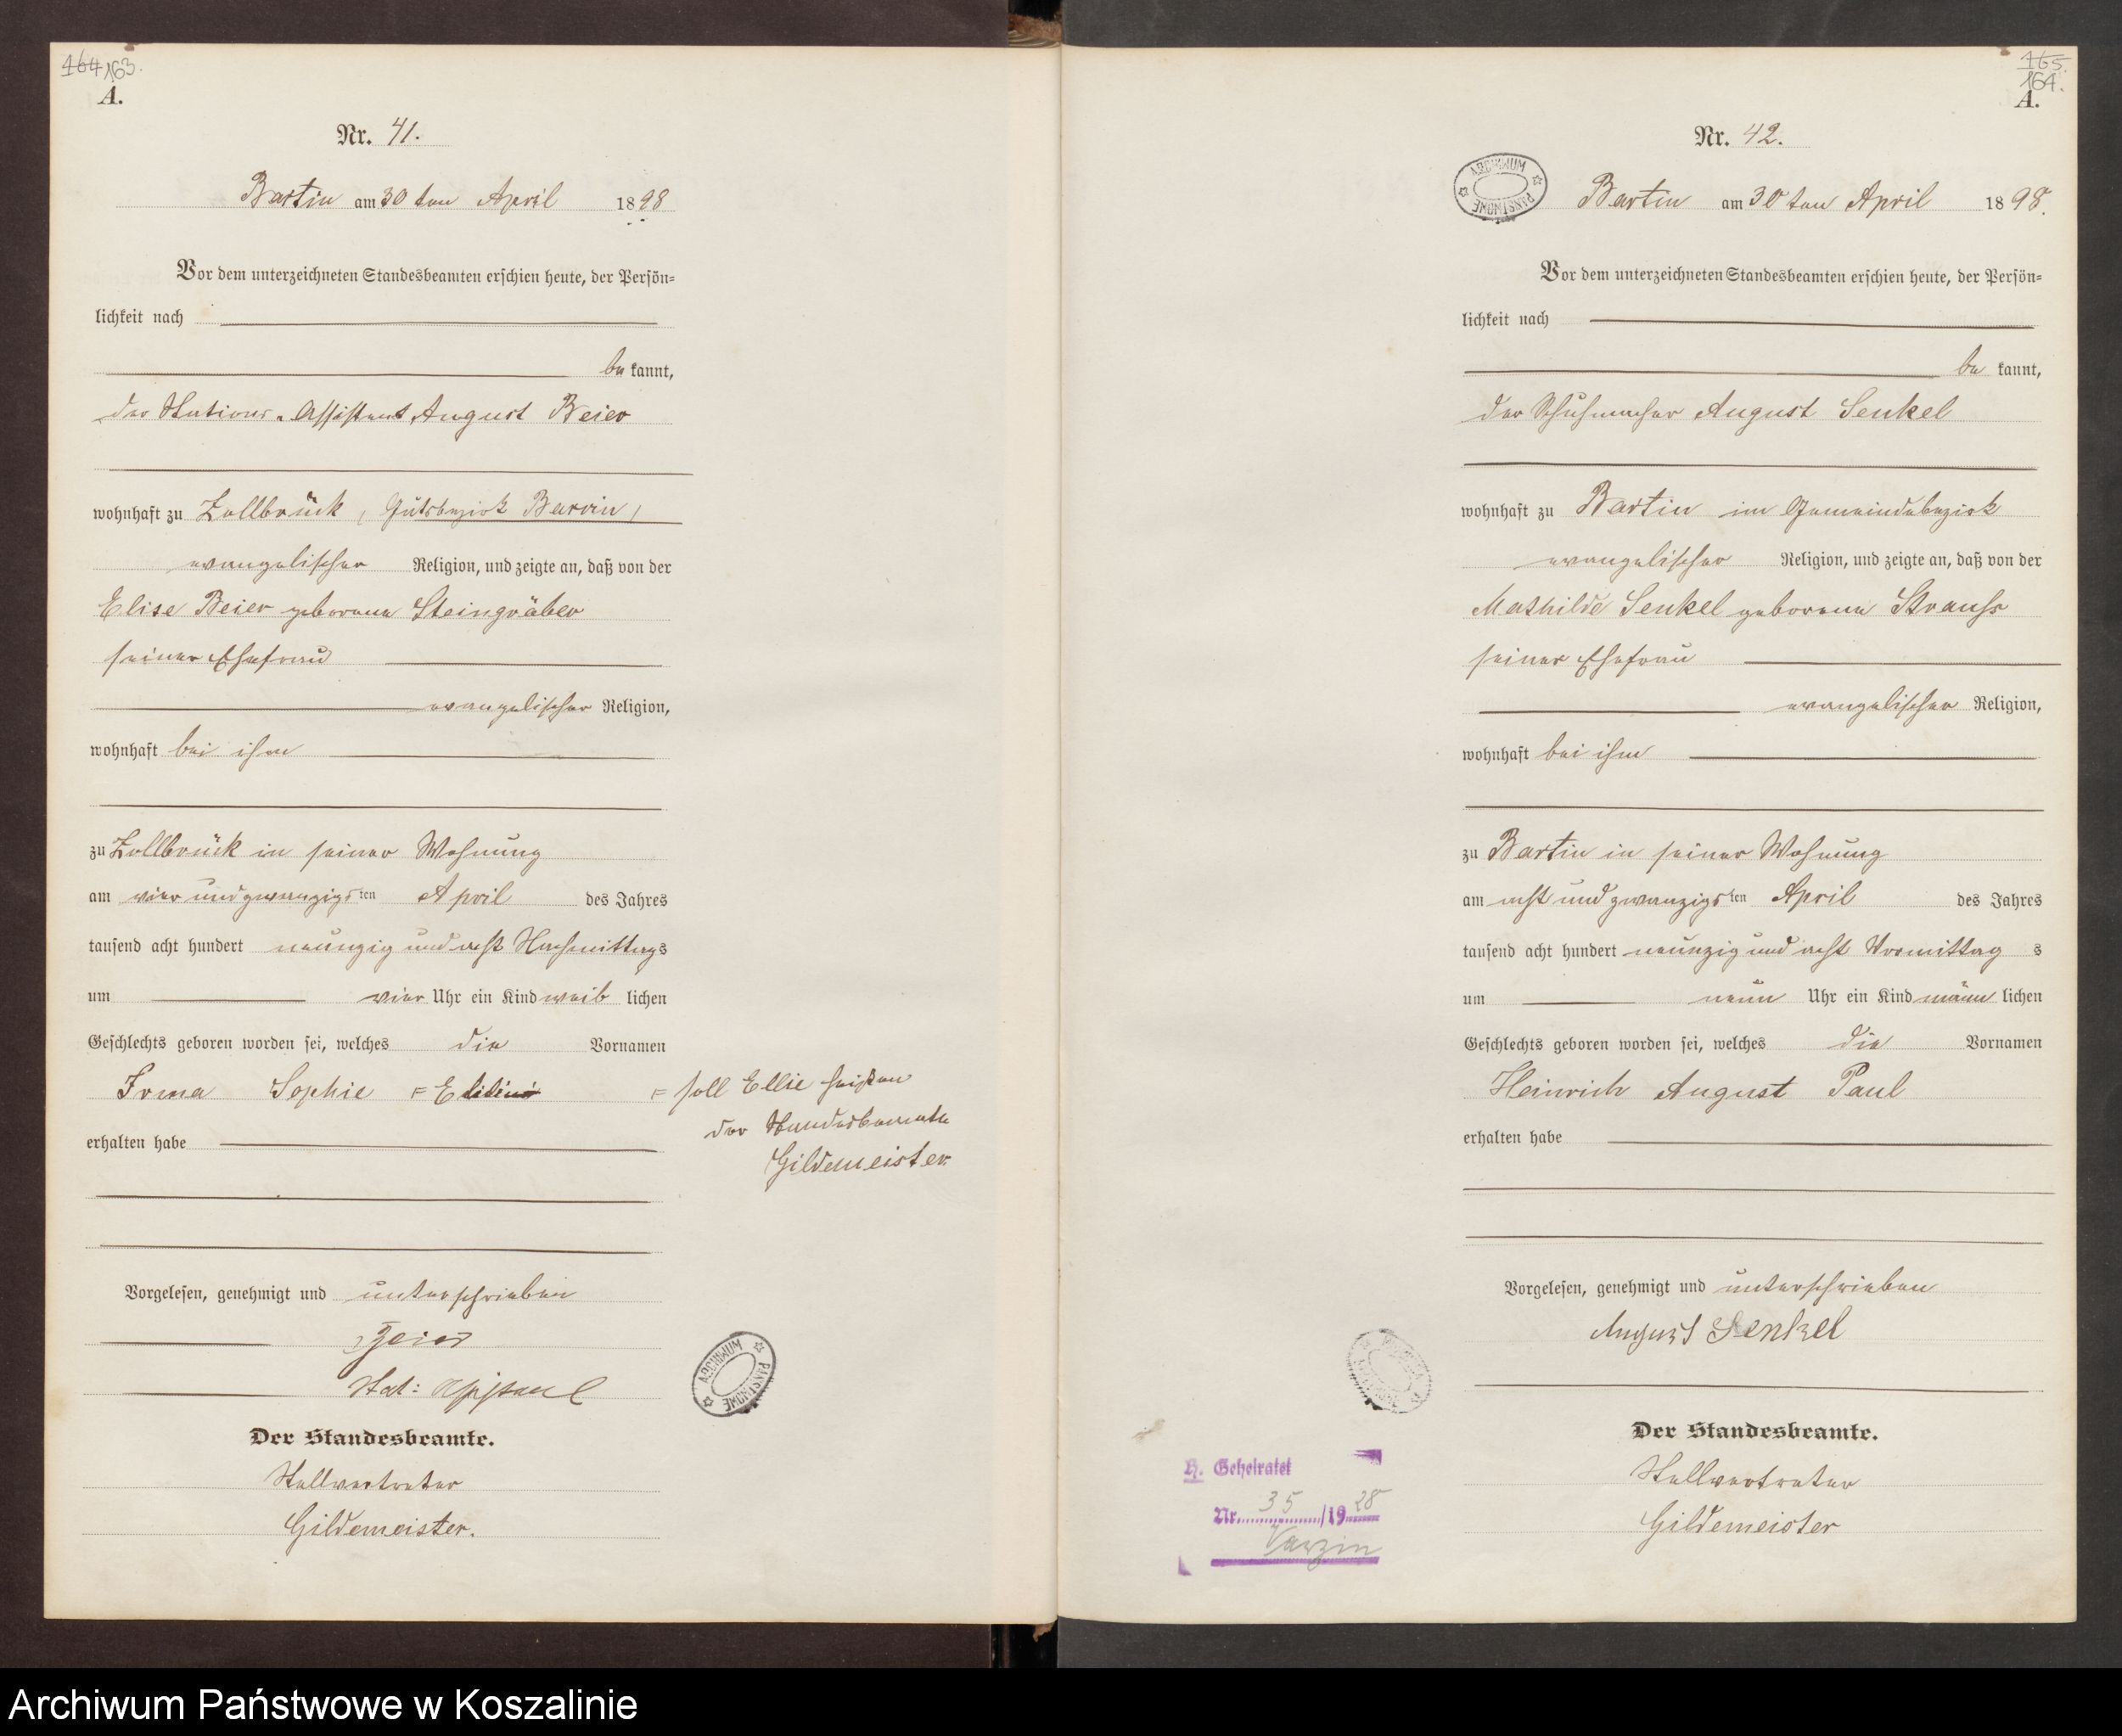 164 163.
A.
Nr. 41.
Bartin am 30ten April 1898
Vor dem unterzeichneten Standesbeamten erschien heute, der Persön=
lichkeit nach
be kannt,
der Stations-Assistent August Beier
wohnhaft zu Zollbrück, Gutsbezirk Barvin,
evangelischer Religion, und zeigte an, daß von der
Elise Beier geborene Steingräber
seiner Ehefrau
evangelischer Religion,
wohnhaft bei ihm
zu Zollbrück in seiner Wohnung
am vier und zwanzigsten April des Jahres
tausend acht hundert neunzig und acht Nachmittags
um vier Uhr ein Kind weib lichen
Geschlechts geboren worden sei, welches die Vornamen
Irma Sophie
= soll Ellie heißen
der Standesbeamte
Gildemeister
erhalten habe
Vorgelesen, genehmigt und unterschrieben
Beier
Stat: Assistent
ARCHIWUM PAŃSTWOWE
Der Standesbeamte.
Stellvertreter
Gildemeister.
165.
164.
A.
Nr. 42.
ARCHIWUM PAŃSTWOWE
Bartin am 30ten April 1898.
Vor dem unterzeichneten Standesbeamten erschien heute, der Persön=
lichkeit nach
be kannt,
der Schuhmacher August Senkel
wohnhaft zu Bartin im Gemeindebezirk
evangelischer Religion, und zeigte an, daß von der
Mathilde Senkel geborene Strauss
seiner Ehefrau
evangelischer Religion,
wohnhaft bei ihm
zu Bartin in seiner Wohnung
am acht und zwanzigsten April des Jahres
tausend acht hundert neunzig und acht Vormittag s
um neun Uhr ein Kind männ lichen
Geschlechts geboren worden sei, welches die Vornamen
Heinrich August Paul
erhalten habe
Vorgelesen, genehmigt und unterschrieben
August Senkel
Der Standesbeamte.
Stellvertreter
Gildemeister
H. Geheiratet
Nr. 35/1928
Varzin
Archiwum Państwowe w Koszalinie